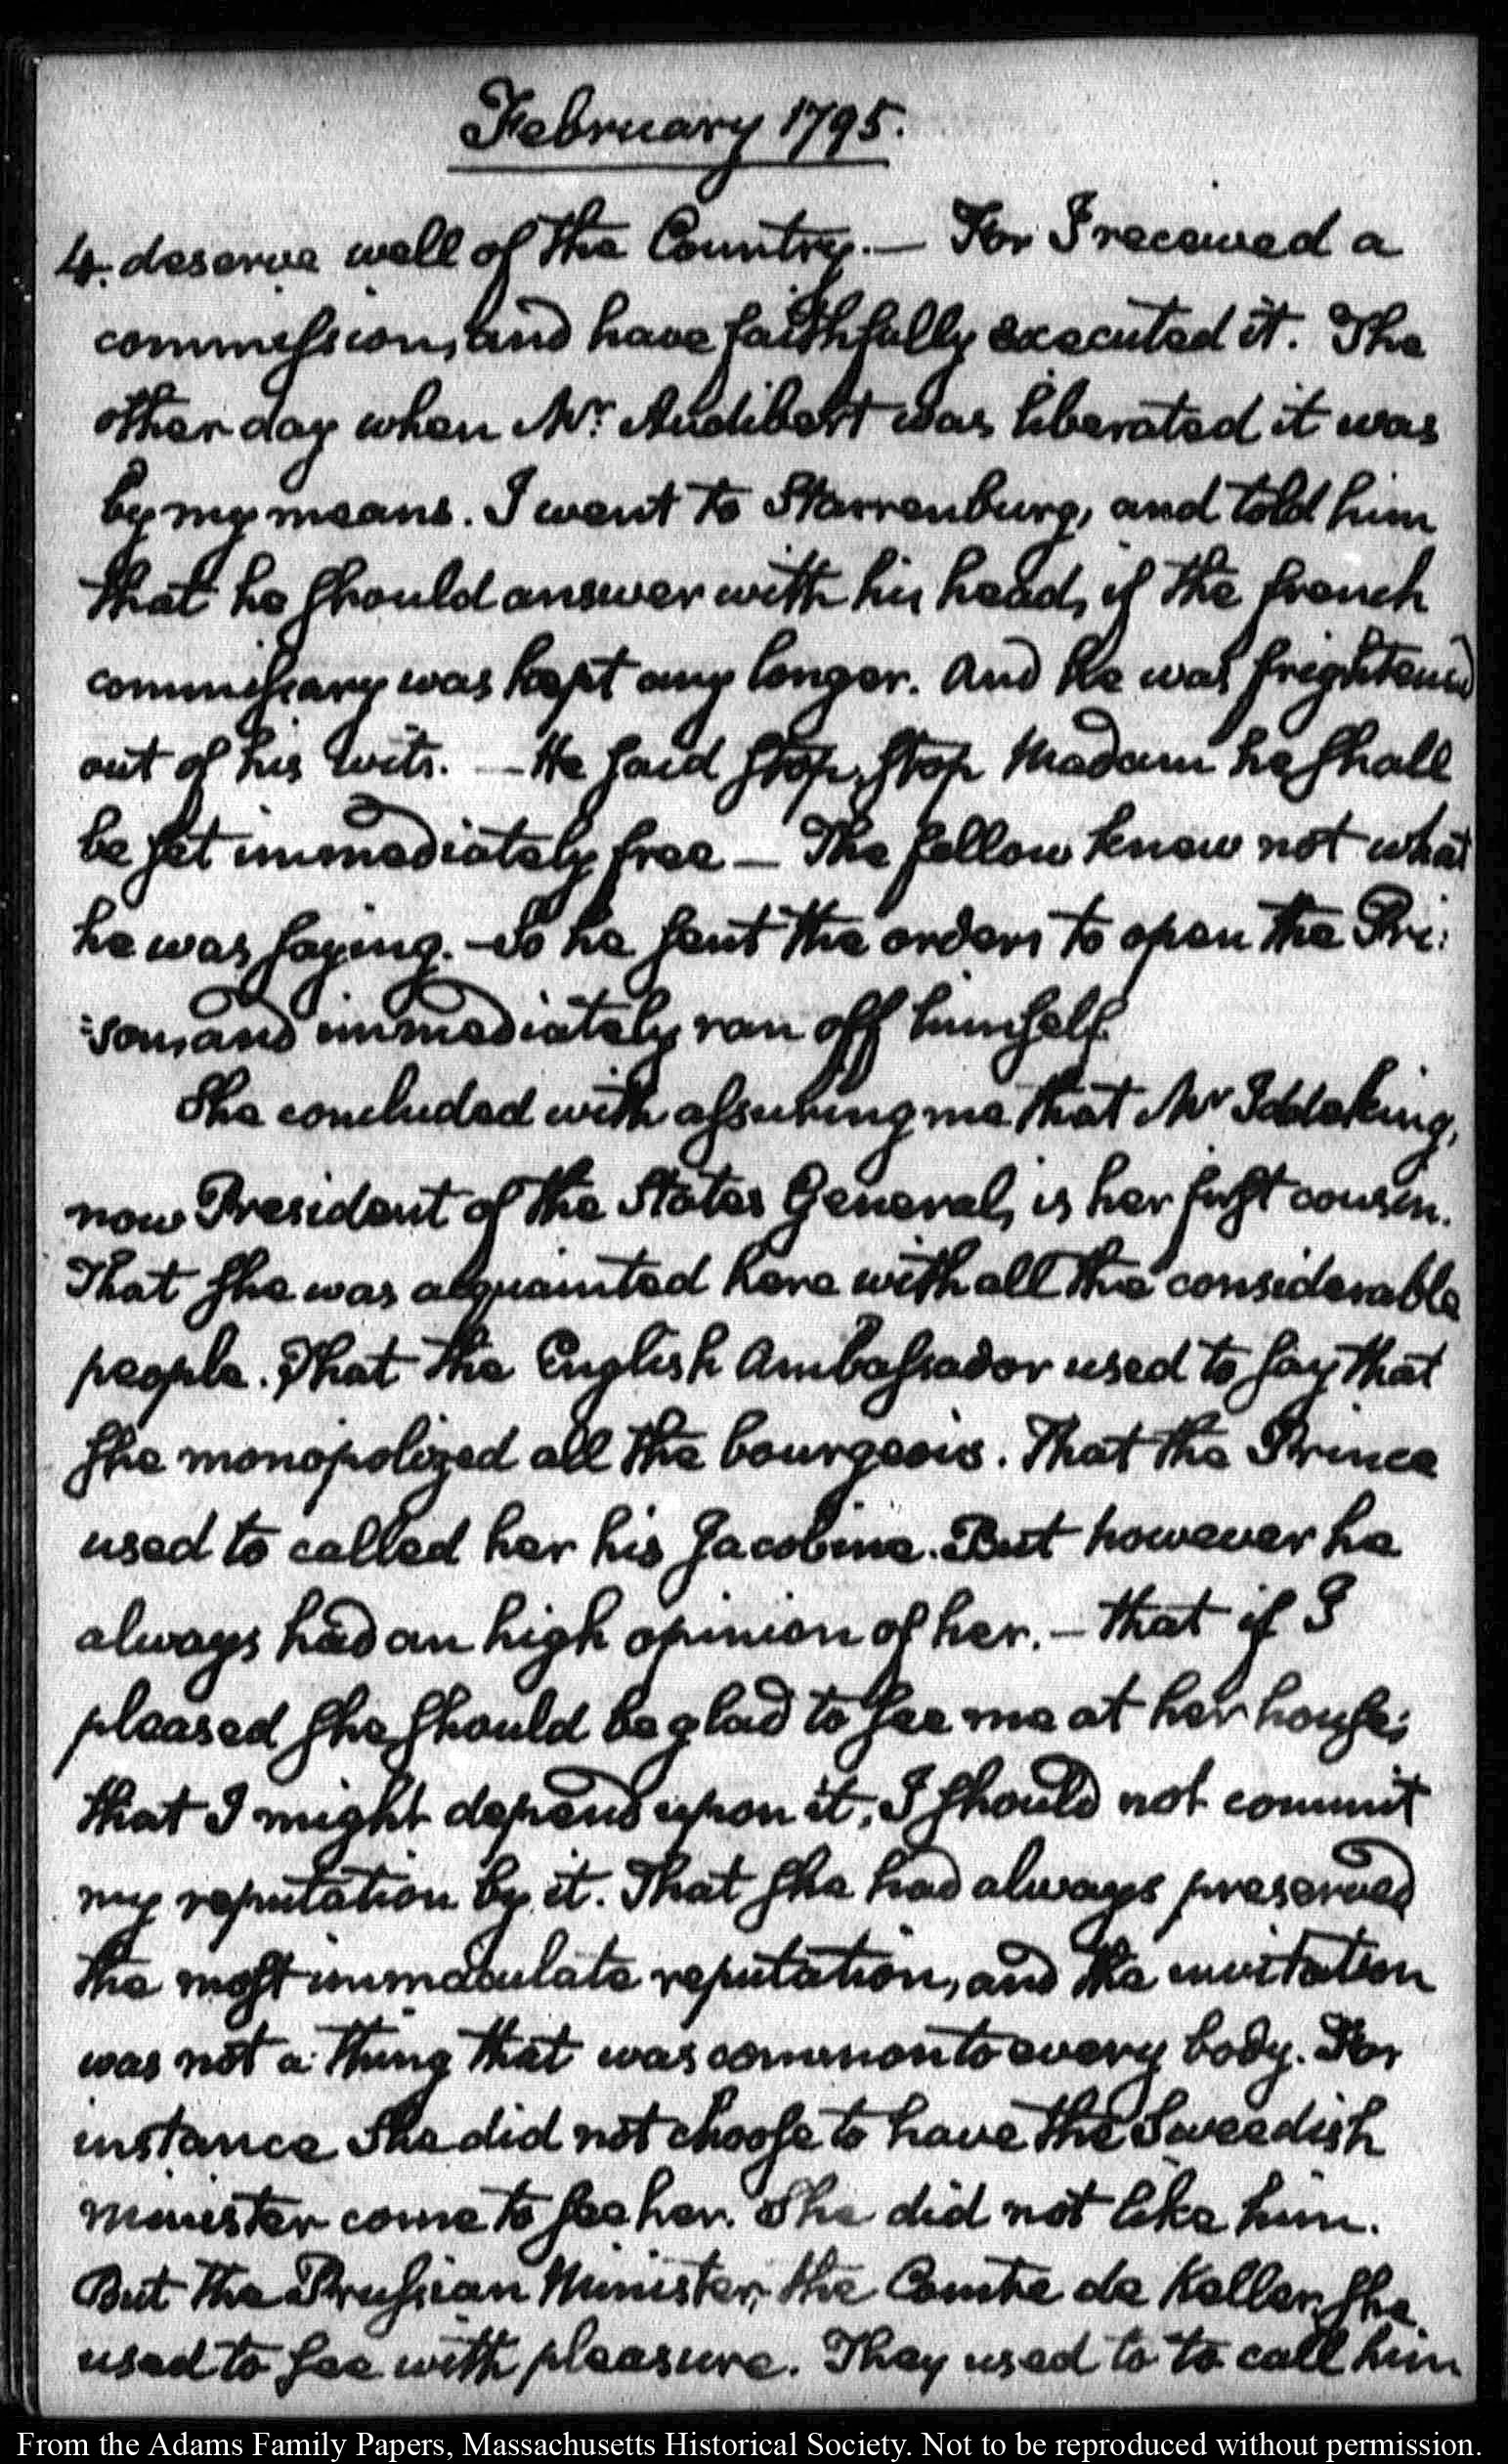 February 1795.
4. deserve well of the Country. — For I received a
commission, and have faithfully executed it. The
other day when Mr. Audibert was liberated it was
by my means. I went to Starrenburg, and told him
that he should answer with his head, if the french
commissary was kept any longer. And he was frightened
out of his wits. — He said stop, stop Madam he shall
be set immediately free — The fellow knew not what
he was saying. — So he sent the orders to open the Pri:
:son, and immediately ran off himself.
She concluded with assuring me that Mr Iddeking,
now President of the States General, is her first cousin.
That she was acquainted here with all the considerable
people. That the English Ambassador used to say that
she monopolized all the bourgeois. That the Prince
used to called her his Jacobine. But however he
always had an high opinion of her. — that if I
pleased she should be glad to see me at her house;
that I might depend upon it, I should not commit
my reputation by it. That she had always preserved
the most immaculate reputation, and the invitation
was not a thing that was common to every body. For
instance She did not choose to have the Sweedish
minister come to see her. She did not like him.
But the Prussian Minister, the Comte de Keller, she
used to see with pleasure. They used to to call him
From the Adams Family Papers, Massachusetts Historical Society. Not to be reproduced without permission.